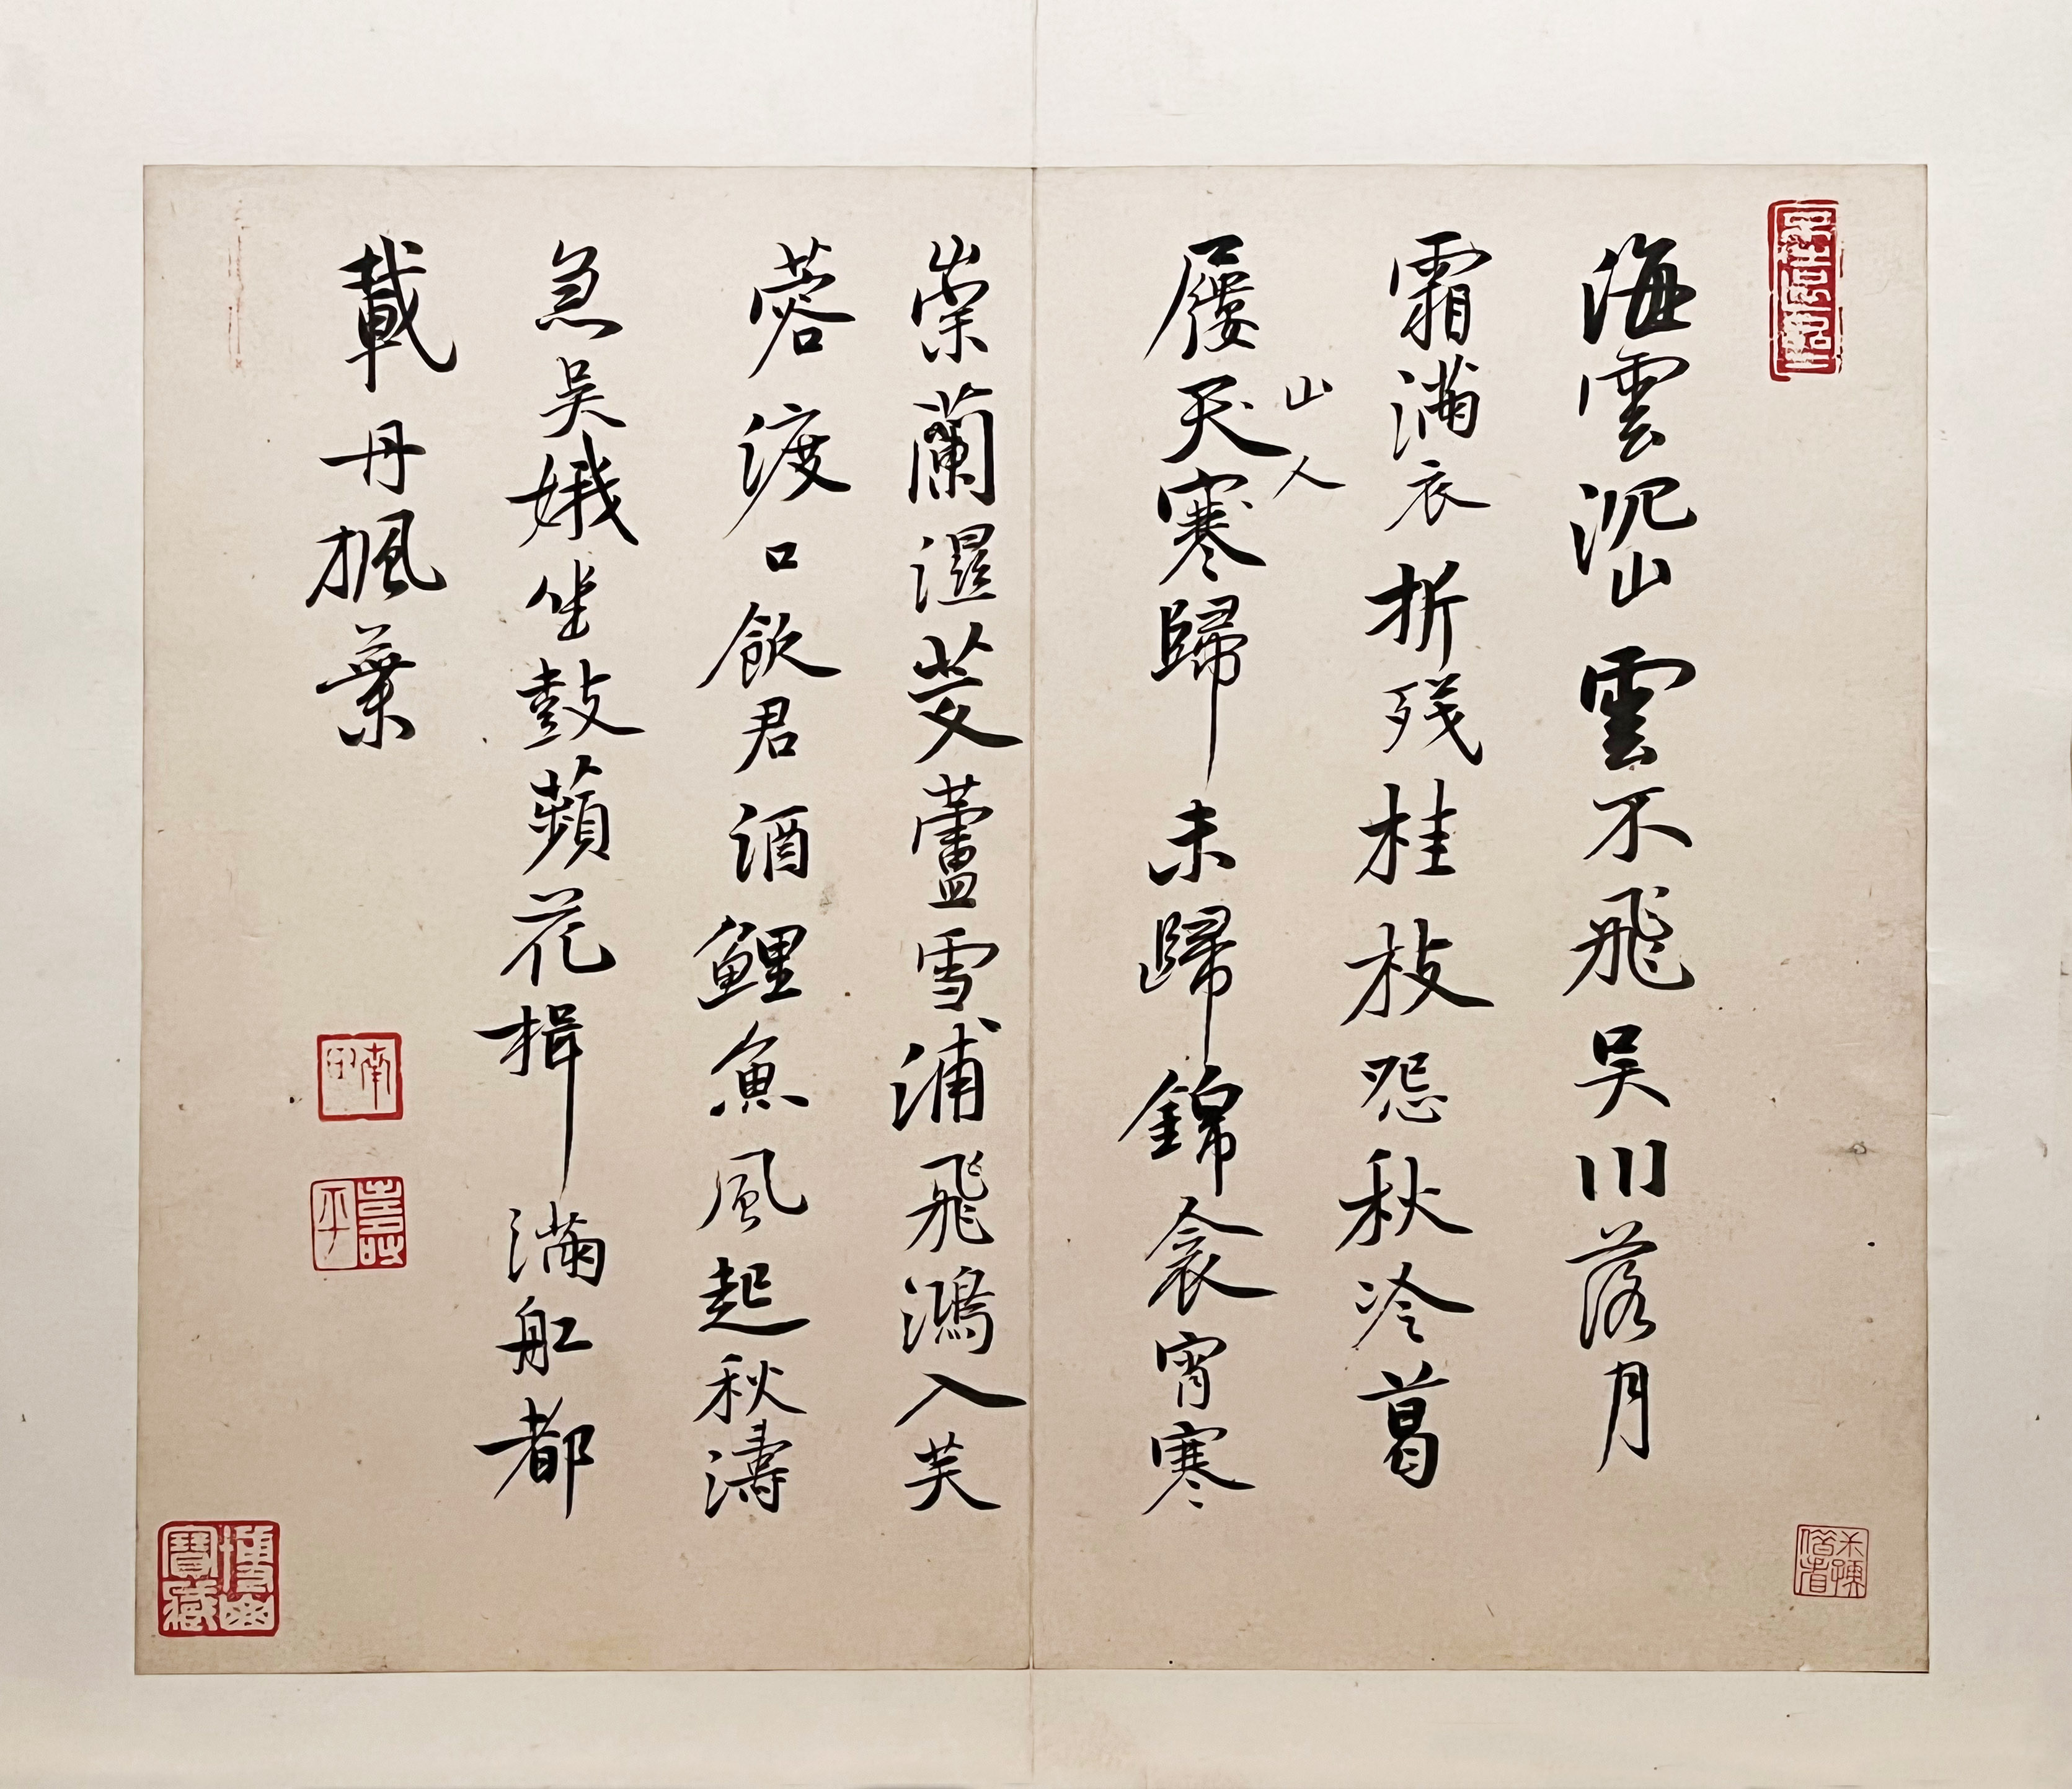 海雲沉山雲不飛吳川落月
霜滿衣折残桂枝怨秋冷葛
山人
屨天寒歸未歸錦衾宵寒
崇蘭濕芰蘆雪浦飛鴻入芙
蓉渡口飲君酒鯉魚風起秋濤
急吳娥坐鼓蘋花楫滿舡都
載丹楓葉
南田
壽平